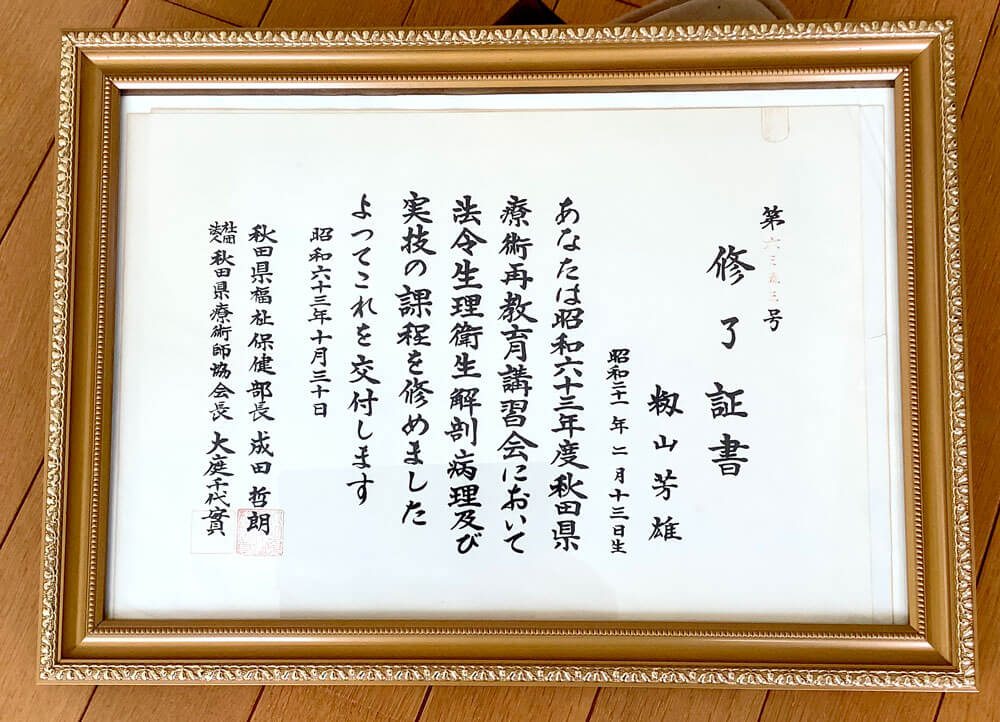 第六三三号
修了証書
籾山芳雄
昭和二十一年二月十三日生
あなたは昭和六十三年度秋田県
療術再教育講習会において
法令生理衛生解剖病理及び
実技の課程を修めました
よつてこれを交付します
昭和六十三年十月三十日
秋田県福祉保健部長 成田哲朗
社団法人 秋田県療術師協会長 大庭千代實